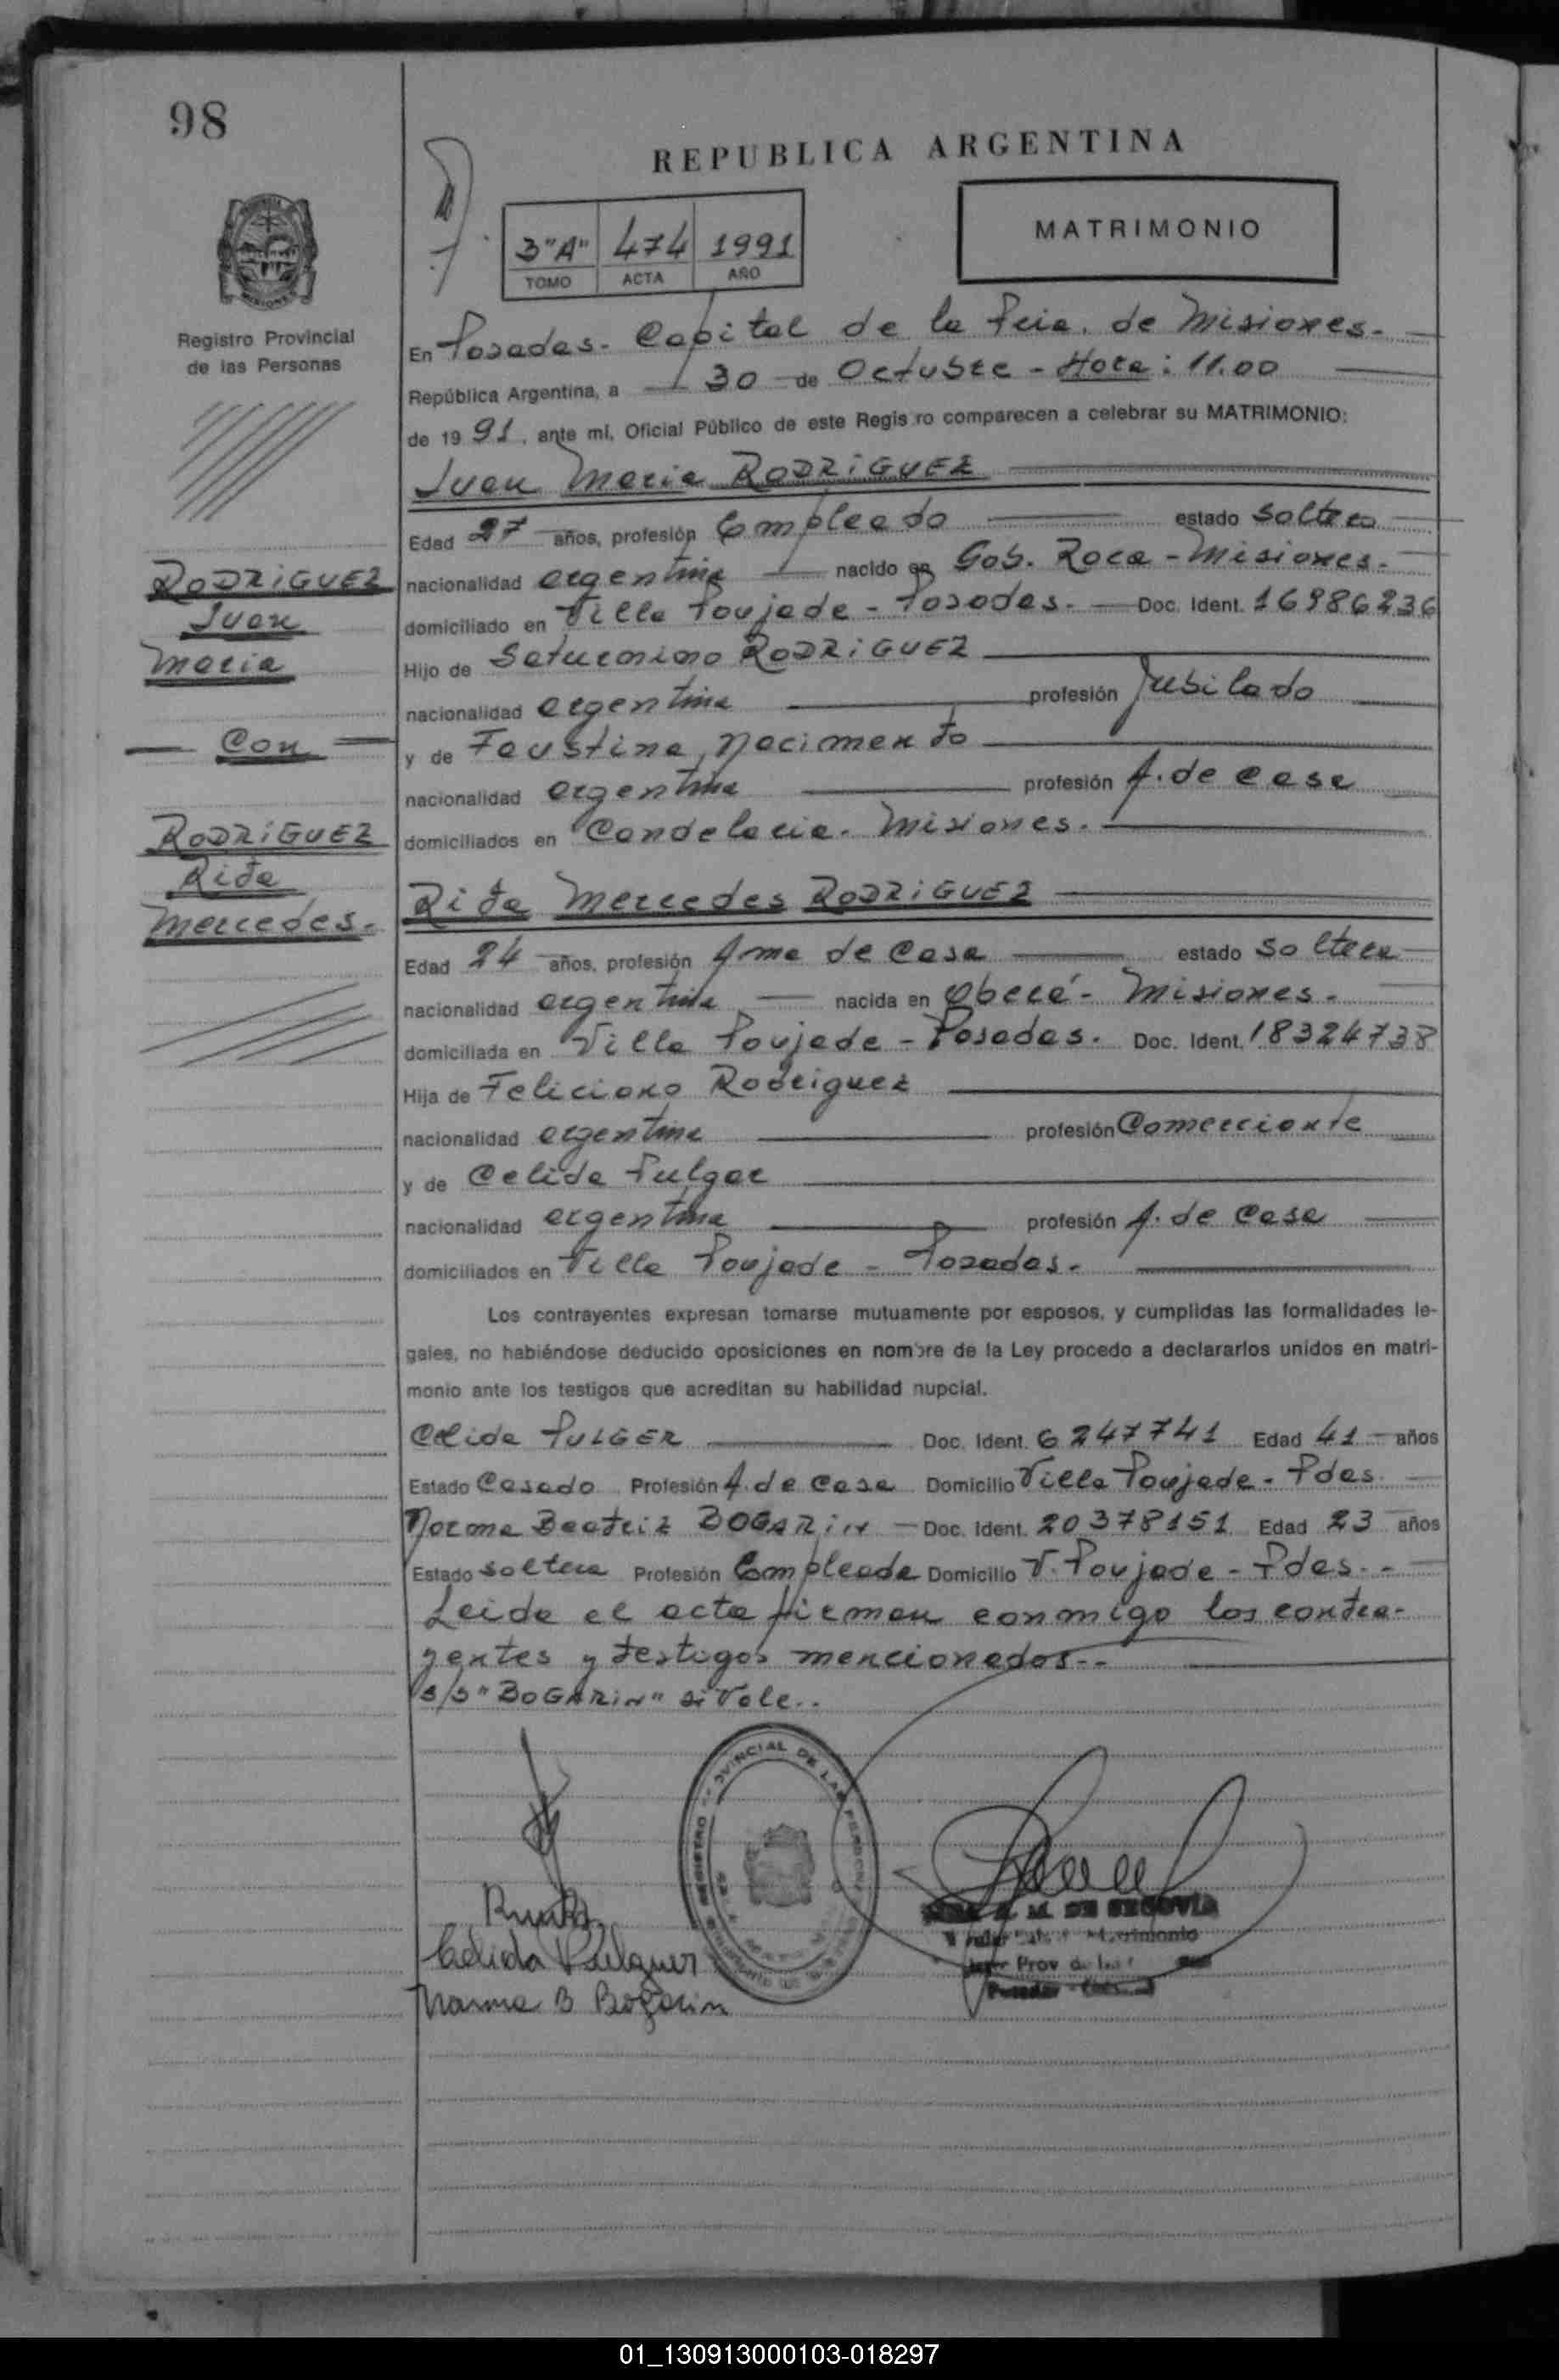 98
REPUBLICA ARGENTINA
MATRIMONIO
3"A" 474 1991
TOMO ACTA AÑO
MISIONES
Registro Provincial
de las Personas
En Posadas - Capital de la Pcia. de Misiones -
República Argentina, a 30 de Octubre - Hora: 11.00
de 19 91, ante mí, Oficial Público de este Regis ro comparecen a celebrar su MATRIMONIO:
Juan Maria RODRIGUEZ
Edad 27 años, profesión Empleado estado soltero
nacionalidad argentina nacido en Gob. Roca - Misiones -
domiciliado en Villa Poujade - Posadas - Doc. Ident. 16986236
Hijo de Saturnino RODRIGUEZ
nacionalidad argentina profesión Jubilado
y de Faustina Nacimento
nacionalidad argentina profesión A. de casa
domiciliados en Candelaria - Misiones -
RODRIGUEZ
Juan
Maria
Con
RODRIGUEZ
Rita
Mercedes -
Rita Mercedes RODRIGUEZ
Edad 24 años, profesión Ama de Casa estado soltera
nacionalidad argentina nacida en Oberá - Misiones -
domiciliada en Villa Poujade - Posadas. Doc. Ident. 18324738
Hija de Feliciano Rodriguez
nacionalidad argentina profesión Comerciante
y de Celida Pulger
nacionalidad argentina profesión A. de casa
domiciliados en Villa Poujade - Posadas -
Los contrayentes expresan tomarse mutuamente por esposos, y cumplidas las formalidades le-
gales, no habiéndose deducido oposiciones en nombre de la Ley procedo a declararlos unidos en matri-
monio ante los testigos que acreditan su habilidad nupcial.
Celida PULGER Doc. Ident. 6247741 Edad 41 años
Estado Casado Profesión A. de casa Domicilio Villa Poujade - Pdas.
Norma Beatriz BOGARIN - Doc. Ident. 20378151 Edad 23 años
Estado soltera Profesión Empleada Domicilio V. Poujade - Pdas. -
Leida el acta firman conmigo los contra-
yentes y testigos mencionados --
s/s "BOGARIN" si Vale..
REGISTRO PROVINCIAL DE LAS PERSONAS
M. DE SEGOVIA
Matrimonio
Prov
Celida Pulguer
Norma B Bogarin
01_130913000103-018297